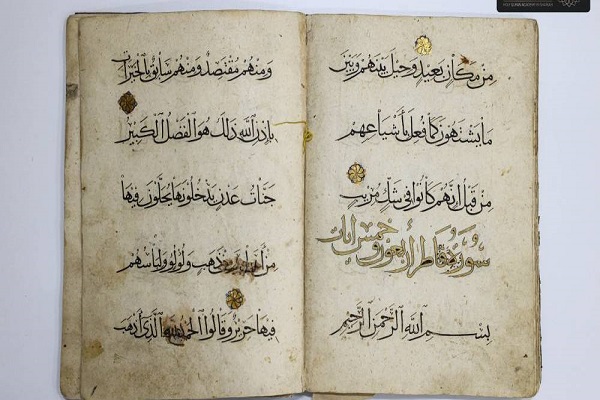 مِنْ مَكَانٍ بَعِيدٍ وَحِيلَ بَيْنَهُمْ وَبَيْنَ
مَا يَشْتَهُونَ كَمَا فُعِلَ بِأَشْيَاعِهِمْ
مِنْ قَبْلُ إِنَّهُمْ كَانُوا فِي شَكٍّ مُرِيبٍ
سورة فاطر أربعون وخمس آيات
بِسْمِ اللَّهِ الرَّحْمَنِ الرَّحِيمِ
وَمِنْهُمْ مُقْتَصِدٌ وَمِنْهُمْ سَابِقٌ بِالْخَيْرَاتِ
بِإِذْنِ اللَّهِ ذَلِكَ هُوَ الْفَضْلُ الْكَبِيرُ
جَنَّاتُ عَدْنٍ يَدْخُلُونَهَا يُحَلَّوْنَ فِيهَا
مِنْ أَسَاوِرَ مِنْ ذَهَبٍ وَلُؤْلُؤًا وَلِبَاسُهُمْ
فِيهَا حَرِيرٌ وَقَالُوا الْحَمْدُ لِلَّهِ الَّذِي أَذْهَبَ